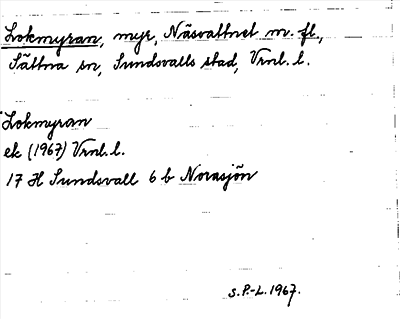 Lokmyran, myr, Näsvattnet m. fl.,
Sättna sn, Sundsvalls stad, Vrnl. l.
Lokmyran
ek (1967) Vrnl. l.
17 H Sundsvall 6 b Norasjön
S.P.-L. 1967.